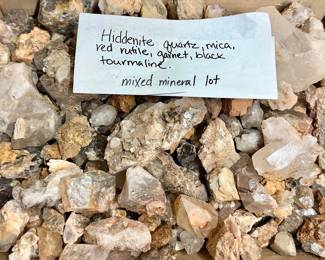 Hiddenite quartz, mica,
red rutile, garnet, black
tourmaline.
mixed mineral lot